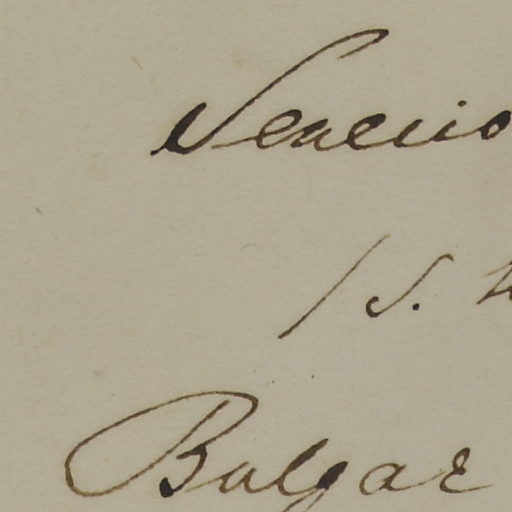 Senecio
(S.
Bulgar